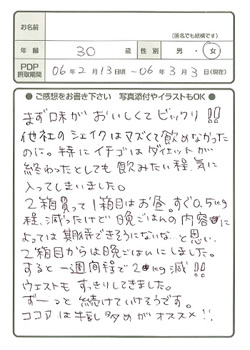 お名前
(匿名でも結構です)
年齢 30 歳 性別 男・女
PDP摂取期間 06年2月13日頃～06年3月3日(現在)
● ご感想をお書き下さい 写真添付やイラストもOK ●
まず味がおいしくてビックリ!!
他社のシェイクはマズくて飲めなかった
のに。特にイチゴはダイエットが
終わったとしても飲みたい程、気に
入ってしまいました。
2箱買って1箱目はお昼。すぐ0.5kg
程、減ったけど晩ごはんの内容に
よっては期待できそうにないな、と思い、
2箱目からは晩ごはんにしました。
すると一週間程で2kg減!!
ウエストもすっきりしてきました。
ず〜っと続けていけそうです。
ココアは牛乳多めがオススメ!!